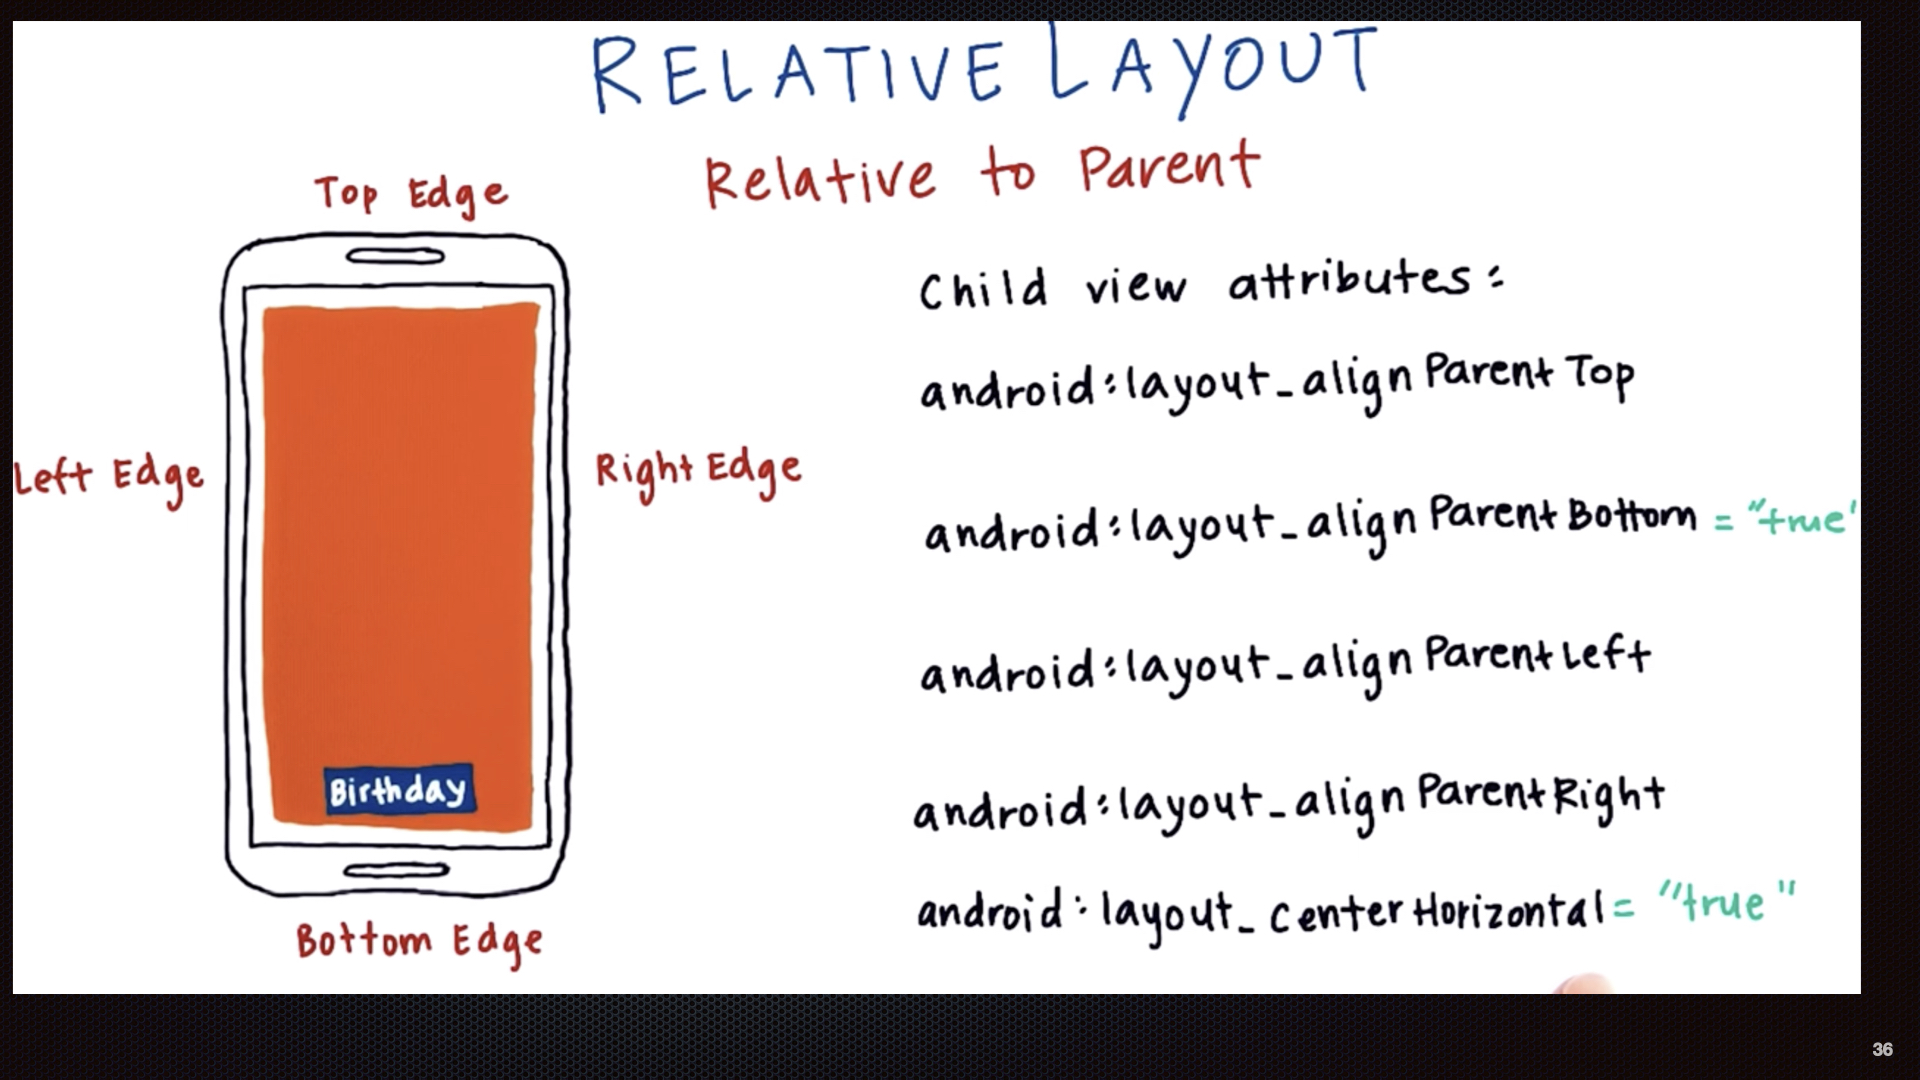 RELATIVE LAYOUT
Relative to Parent
Top Edge
Left Edge
Right Edge
Birthday
Bottom Edge
Child view attributes:
android:layout_alignParentTop
android:layout_alignParentBottom = "true"
android:layout_alignParentLeft
android:layout_alignParentRight
android:layout_centerHorizontal = "true"
36